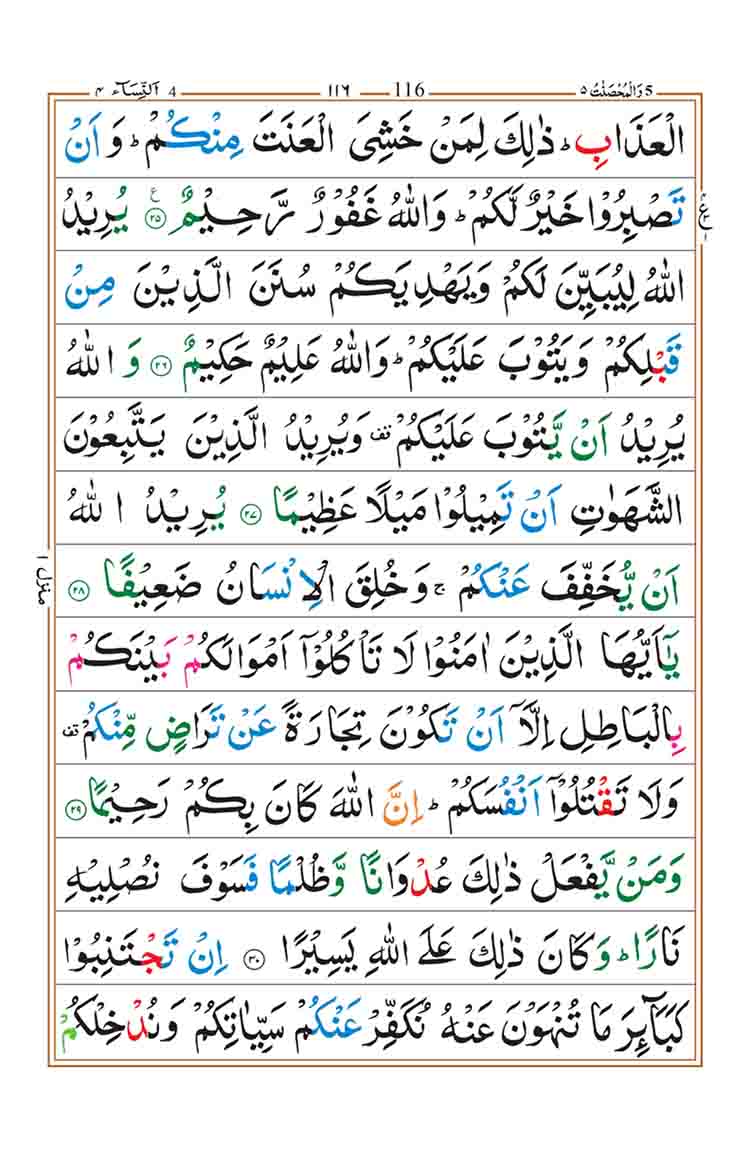 5 وَالْمُحْصَنٰتُ ٥ 116 ١١٦ 4 اَلنِّسَآء ٤
الْعَذَابِ ؕ ذٰلِكَ لِمَنْ خَشِیَ الْعَنَتَ مِنْكُمْ ؕ وَ اَنْ
تَصْبِرُوْا خَیْرٌ لَّكُمْ ؕ وَاللّٰهُ غَفُوْرٌ رَّحِیْمٌ ۟ ع ٢٥ یُرِیْدُ
اللّٰهُ لِیُبَیِّنَ لَكُمْ وَیَهْدِیَكُمْ سُنَنَ الَّذِیْنَ مِنْ
قَبْلِكُمْ وَیَتُوْبَ عَلَیْكُمْ ؕ وَاللّٰهُ عَلِیْمٌ حَكِیْمٌ ٢٦ وَ اللّٰهُ
یُرِیْدُ اَنْ یَّتُوْبَ عَلَیْكُمْ قف وَیُرِیْدُ الَّذِیْنَ یَتَّبِعُوْنَ
الشَّهَوٰتِ اَنْ تَمِیْلُوْا مَیْلًا عَظِیْمًا ٢٧ یُرِیْدُ اللّٰهُ
اَنْ یُّخَفِّفَ عَنْكُمْ ۚ وَخُلِقَ الْاِنْسَانُ ضَعِیْفًا ٢٨
یٰۤاَیُّهَا الَّذِیْنَ اٰمَنُوْا لَا تَاْكُلُوْۤا اَمْوَالَكُمْ بَیْنَكُمْ
بِالْبَاطِلِ اِلَّاۤ اَنْ تَكُوْنَ تِجَارَةً عَنْ تَرَاضٍ مِّنْكُمْ قف
وَلَا تَقْتُلُوْۤا اَنْفُسَكُمْ ؕ اِنَّ اللّٰهَ كَانَ بِكُمْ رَحِیْمًا ٢٩
وَمَنْ یَّفْعَلْ ذٰلِكَ عُدْوَانًا وَّظُلْمًا فَسَوْفَ نُصْلِیْهِ
نَارًا ؕ وَكَانَ ذٰلِكَ عَلَی اللّٰهِ یَسِیْرًا ٣٠ اِنْ تَجْتَنِبُوْا
كَبَآىِٕرَ مَا تُنْهَوْنَ عَنْهُ نُكَفِّرْ عَنْكُمْ سَیِّاٰتِكُمْ وَنُدْخِلْكُمْ
منزل ١